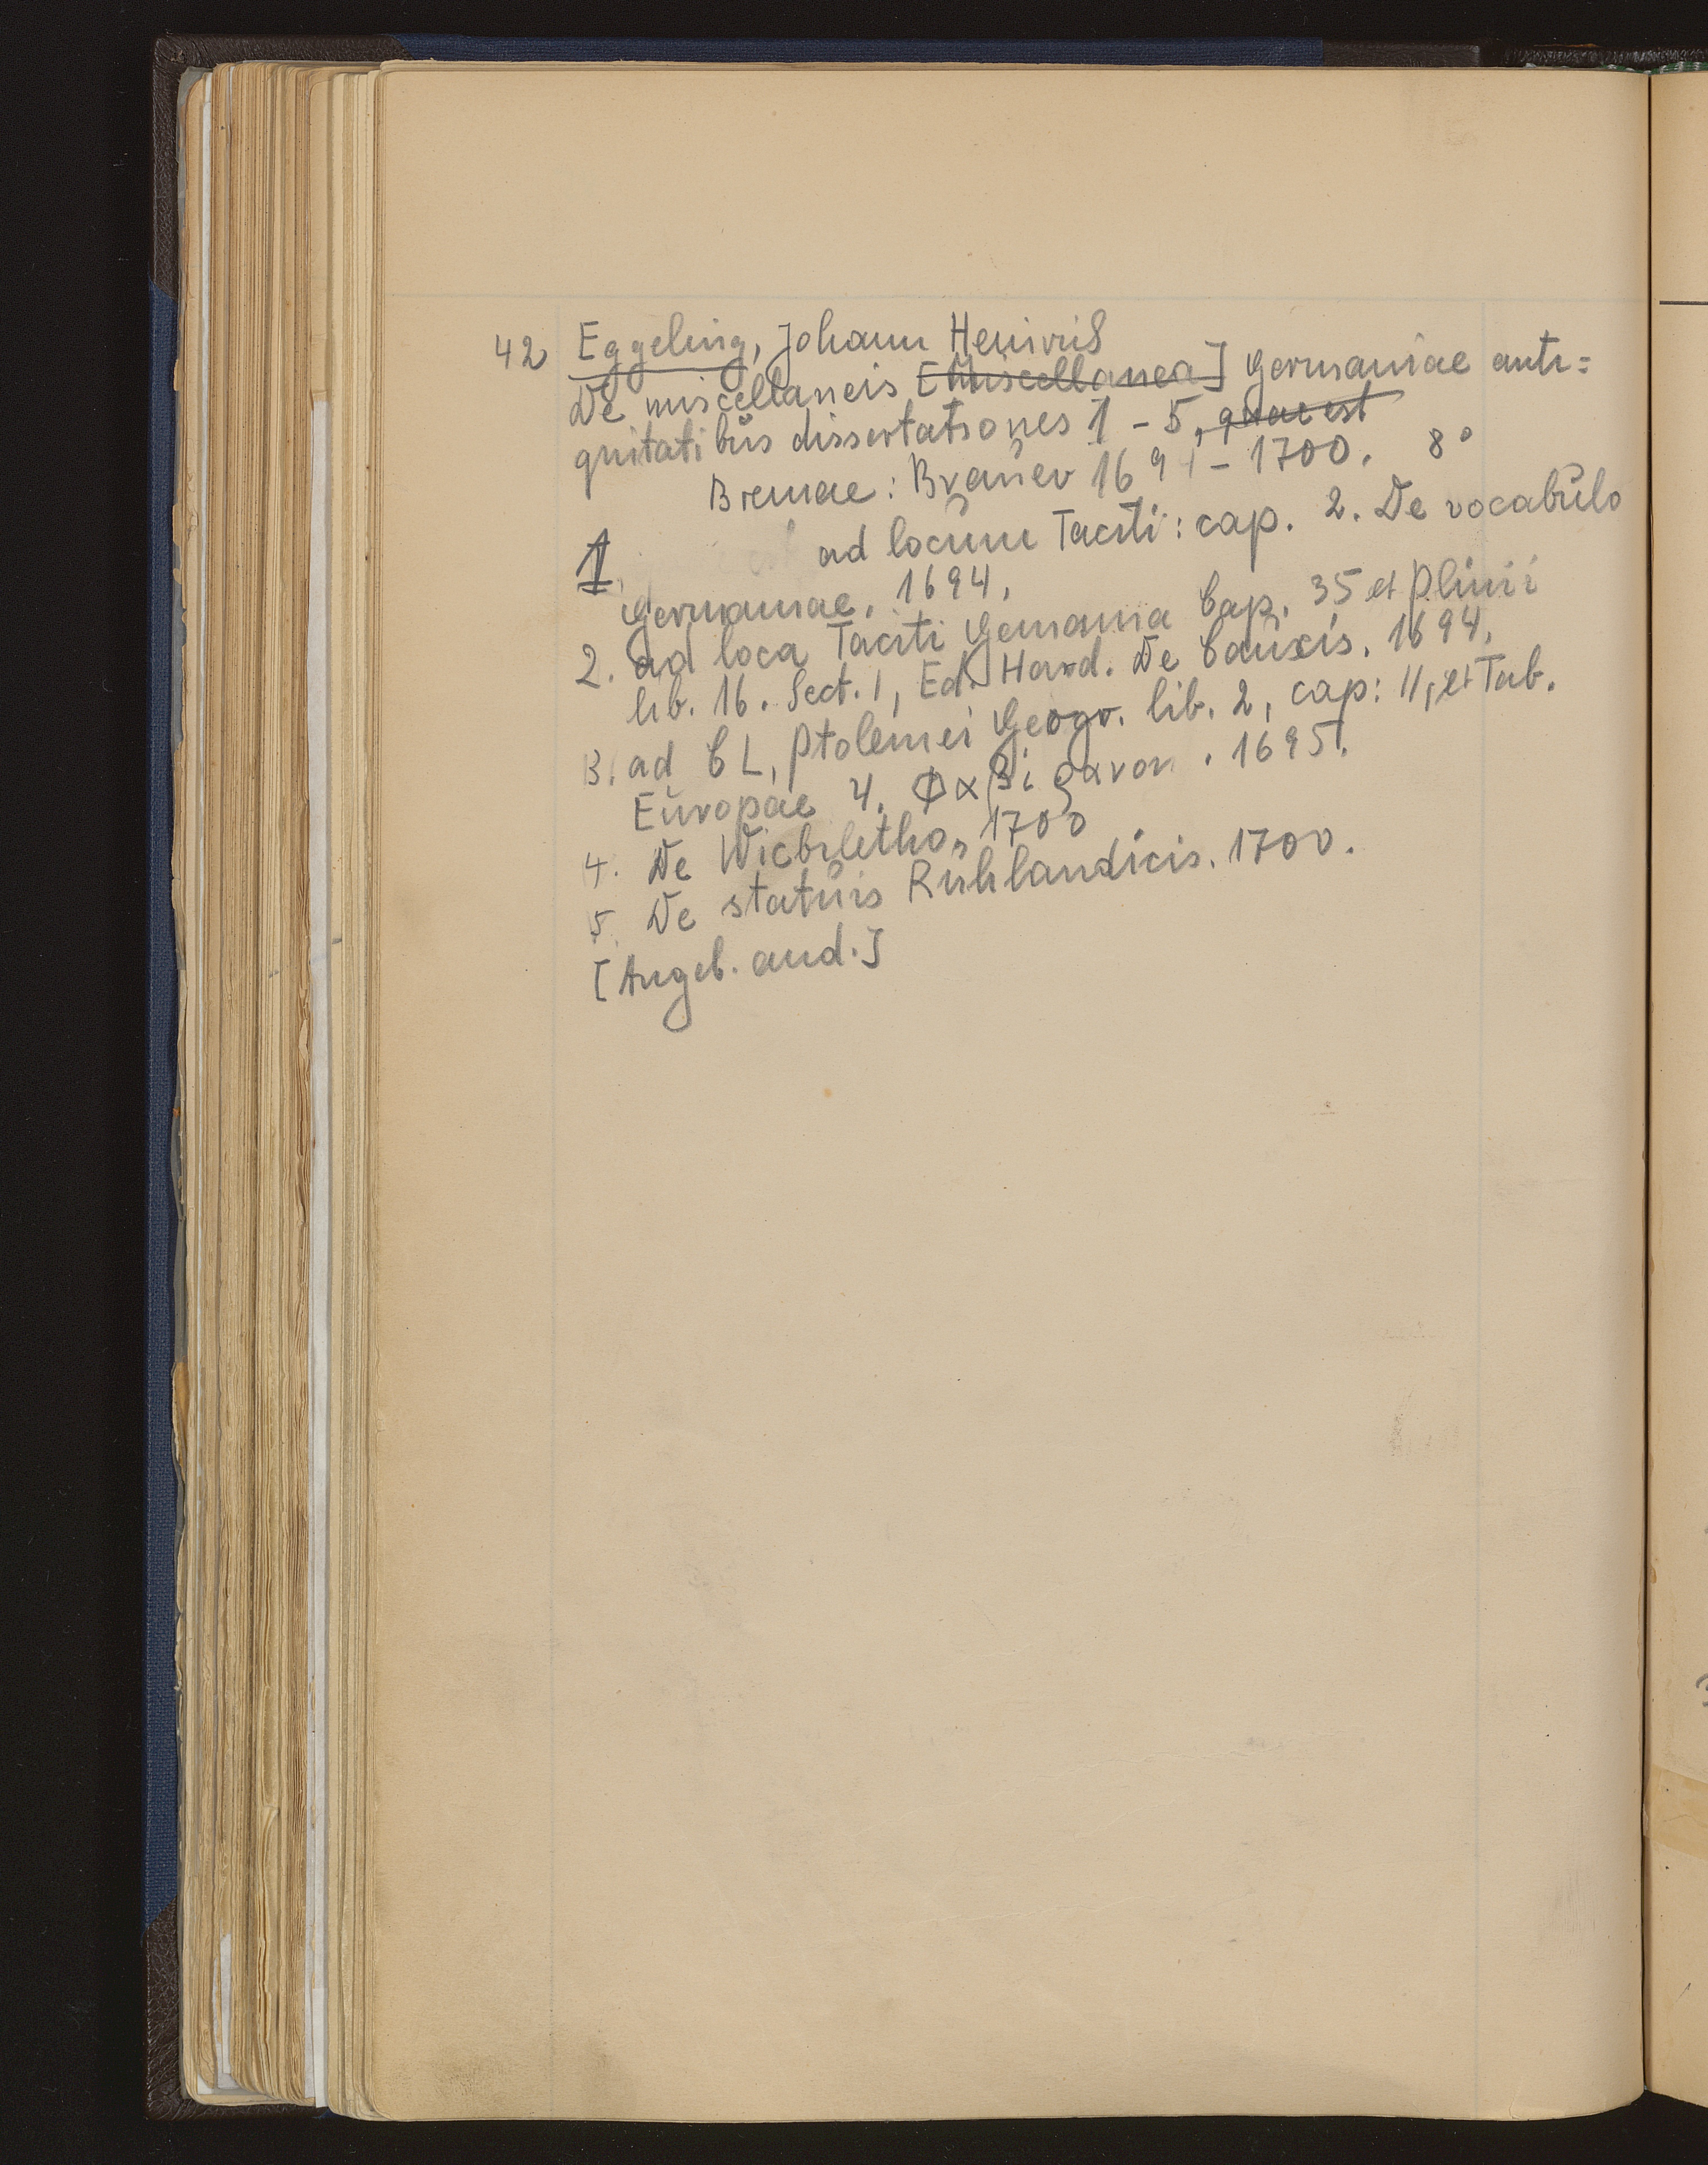 42 Eggeling, Johann Heinrich
De miscellaneis [Miscellanea] Germaniae anti=
quitatibus dissertationes 1 - 5, quae est
Bremae: Brauer 1694 - 1700. 8°
1. ad locum Taciti: cap. 2. De vocabulo
Germaniae. 1694.
2. ad loca Taciti Gemania Cap. 35 et Plinii
lib. 16. Sect. 1, Ed. Hard. De Cauxis. 1694.
3. ad CL. Ptolemei Geogr. lib. 2, cap: 11, et Tab.
Europae 4. Φαβιραvον. 1695.
4. De Wicbiletho, 1700
5. De statuis Ruhlandicis. 1700.
[Angeb. and.]